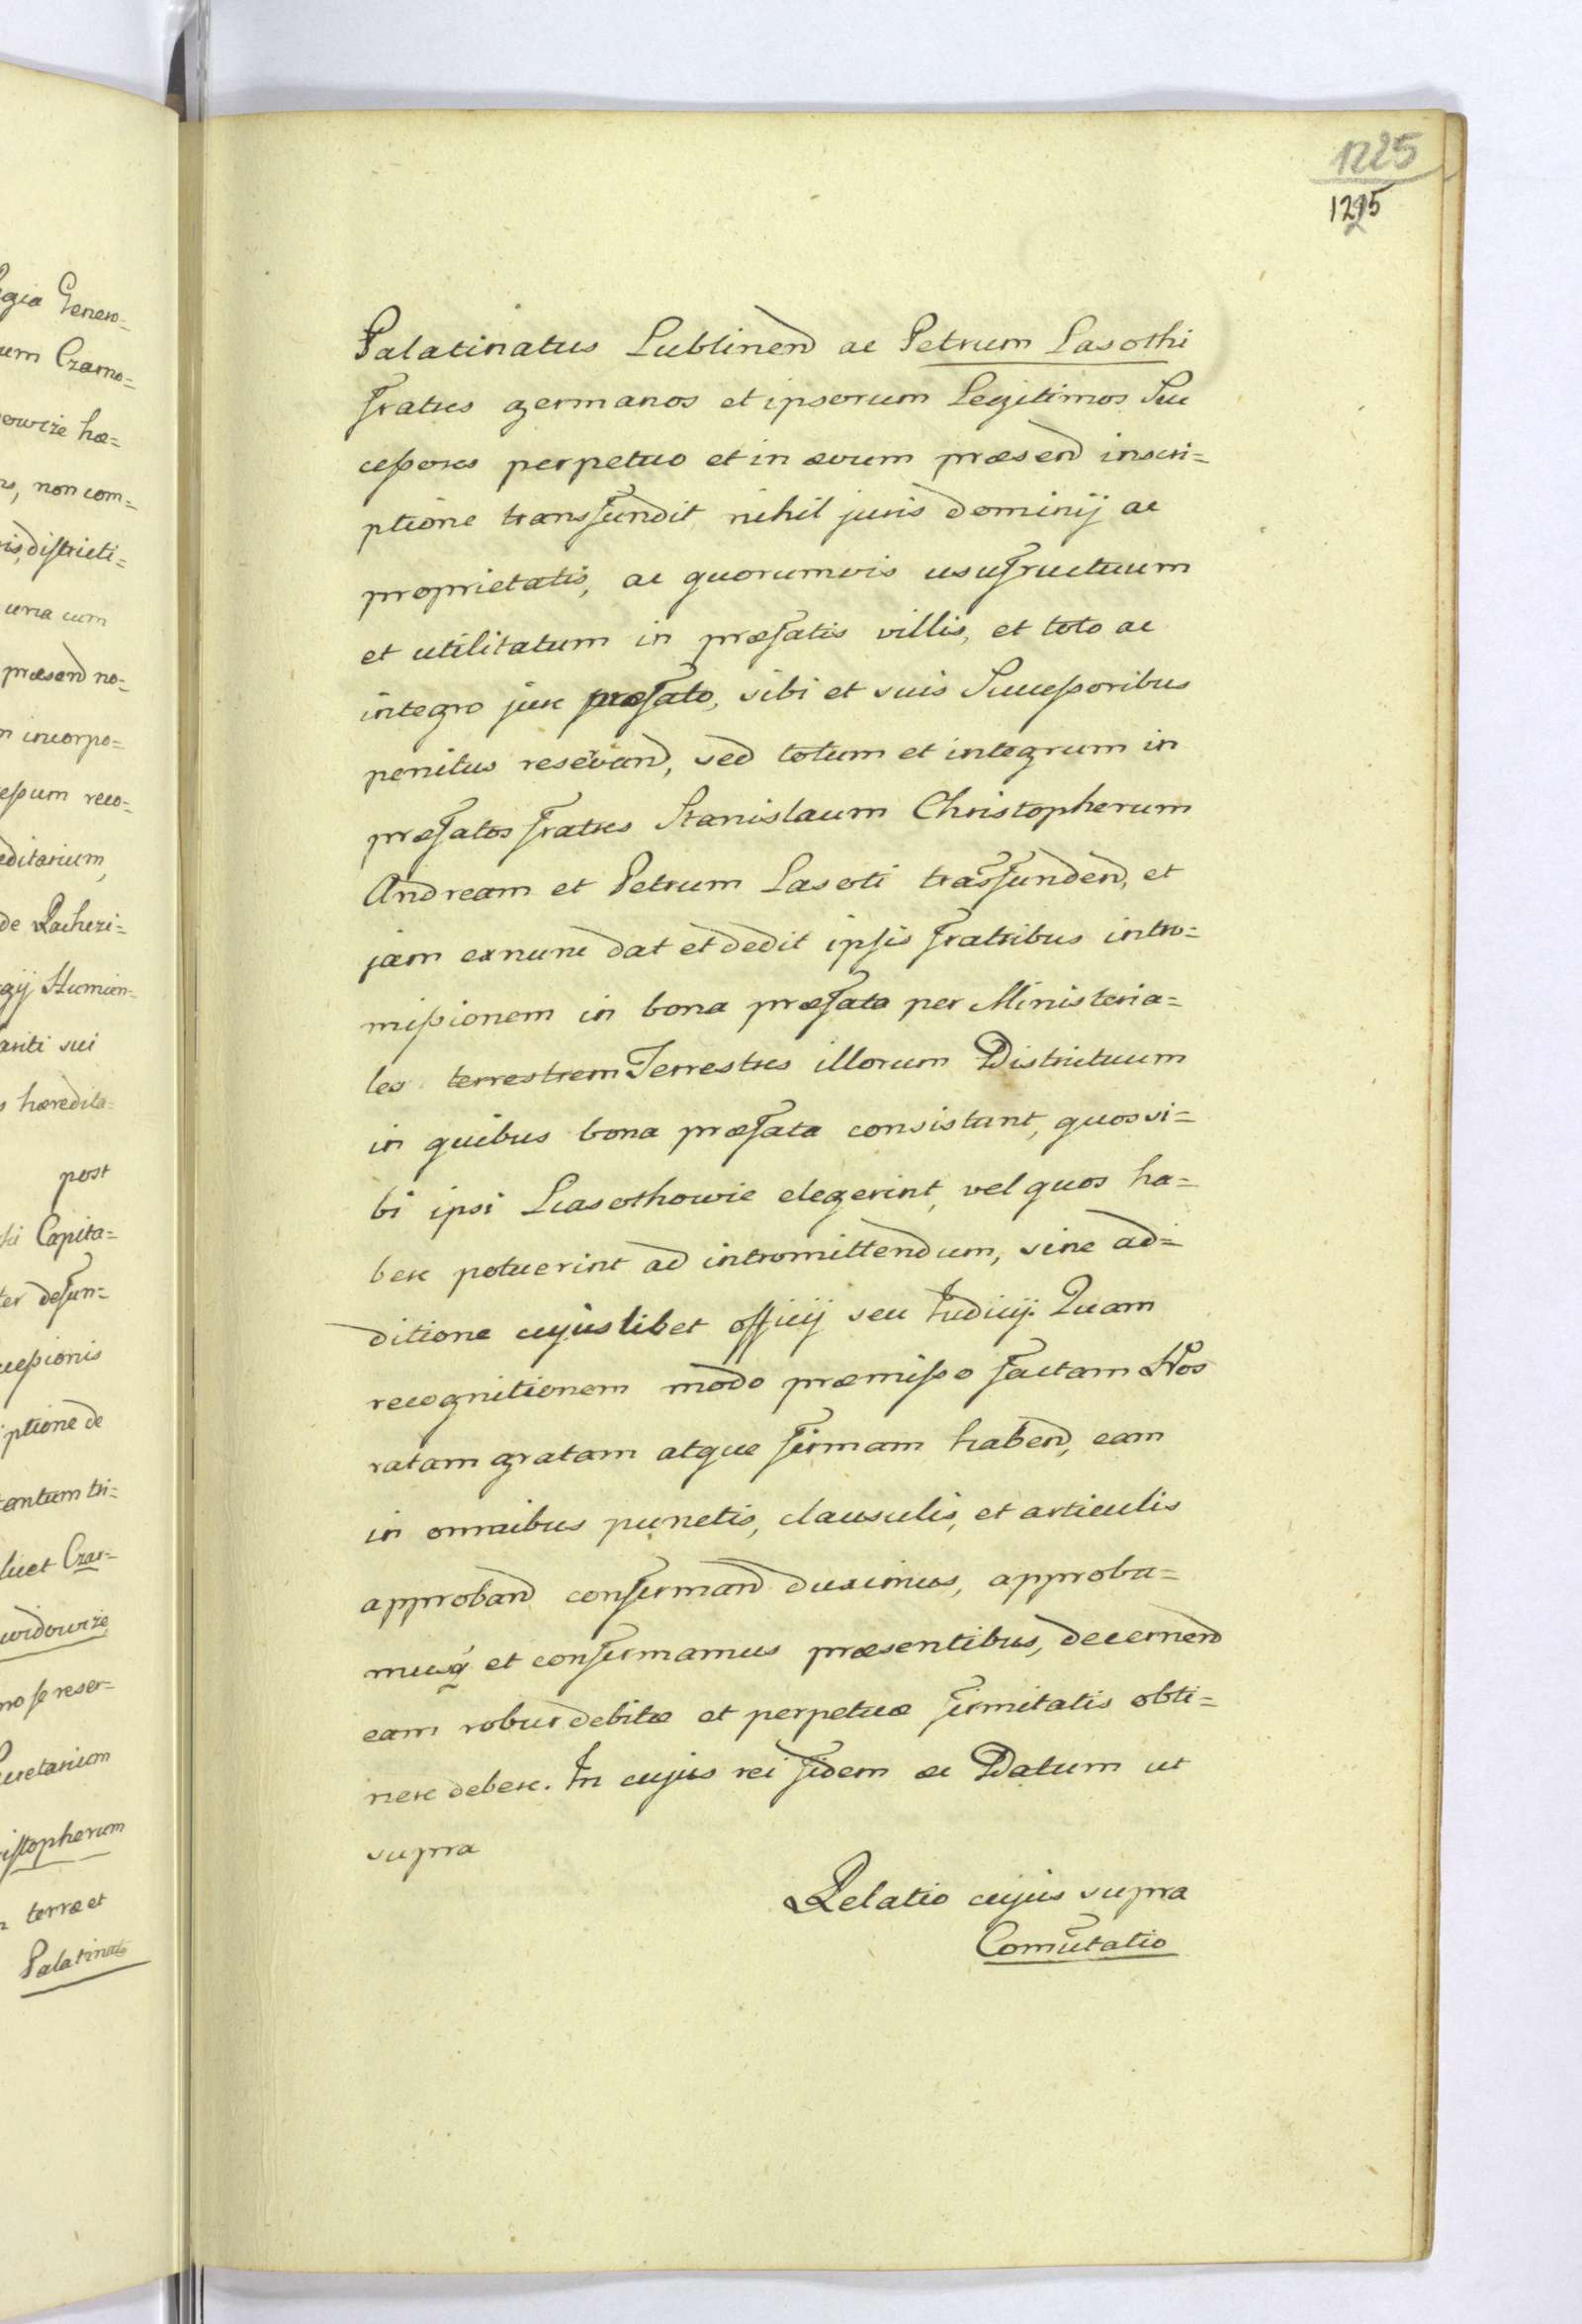 1225
1215
Palatinatus Lublinend ac Petrum Lasothi
fratres germanos et ipsorum Legitimos Suc
cessores perpetuo et in ævum præsend inscri=
ptione transfundit nihil juris dominij ac
proprietatis, ac quorumvis usufructuum
et utilitatum in præfatis villis, et toto ac
integro jure præfato, sibi et suis Successoribus
penitus resevand, sed totum et integrum in
præfatos fratres Stanislaum Christopherum
Andream et Petrum Lasoti trasfundend, et
jam exnunc dat et dedit ipsis fratribus intro=
missionem in bona præfata per Ministeria=
les terrestrem Terrestres illorum Districtuum
in quibus bona præfata consistunt, quos si=
bi ipsi Lasothowie elegerint, vel quos ha=
bere potuerint ad intromittendum, sine ad=
ditione cujuslibet officij seu Judicij. Quam
recognitionem modo præmisso factam Nos
ratam gratam atque firmam habend, eam
in omnibus punctis, clausulis, et articulis
approband confirmand duximus, approba=
musq et confirmamus præsentibus, decernend
eam robur debitæ et perpetuæ firmitatis obti=
nere debere. In cujus rei fidem &c Datum ut
supra
Relatio cujus supra
Comutatio
egia Genero=
um Czarno=
owize hæ=
ns, non com=
is, districti=
una cum
præsend no=
m incorpo=
essum reco=
editarium,
de Racheri=
gij Humien=
anti sui
s hæredita=
post
ki Capita=
ter defun=
cessionis
iptione de
tantum tri=
licet Czar=
widowize
no se reser=
cretarium
istopherum
terræ et
Palatinats